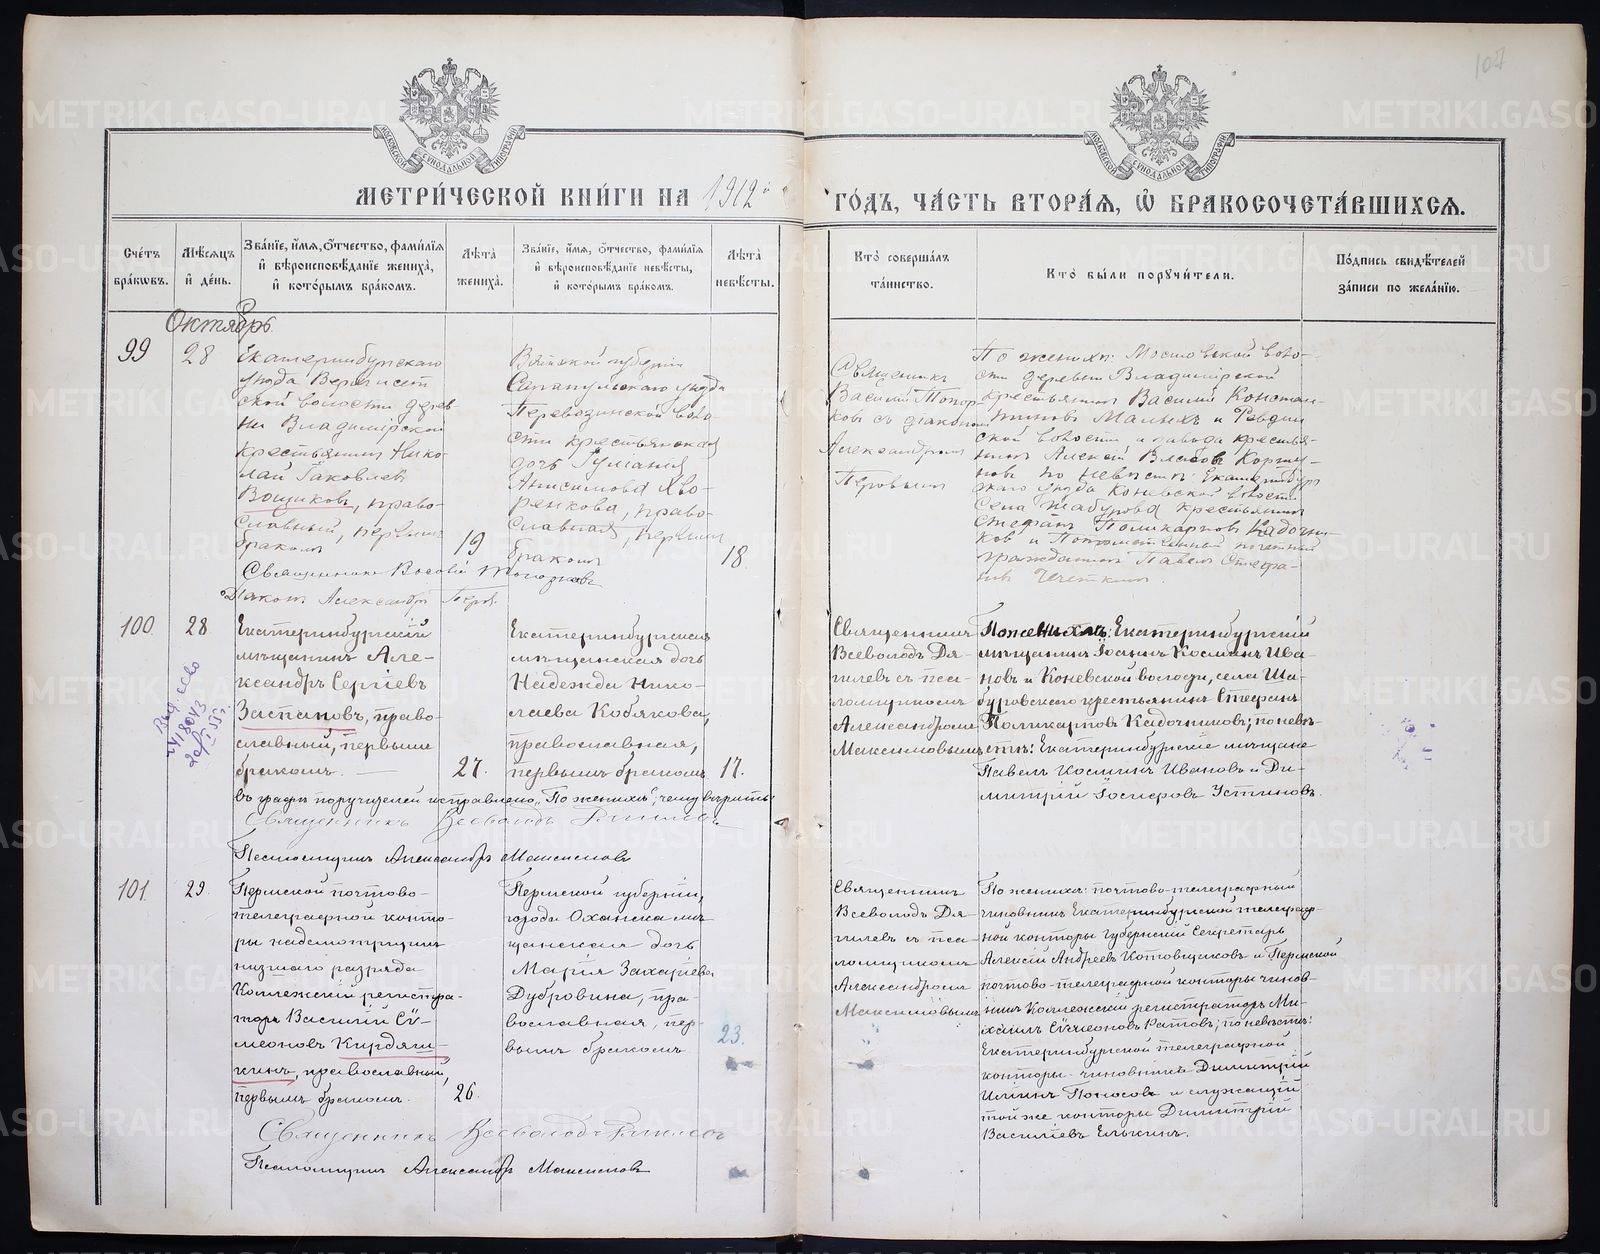 107
МОСКОВСКОЙ СѴНОДАЛЬНОЙ ТИПОГРАФІИ
МОСКОВСКОЙ СѴНОДАЛЬНОЙ ТИПОГРАФІИ
МЕТРИ́ЧЕСКОЙ КНИ́ГИ НА 1912й ГО́ДЪ, ЧА́СТЬ ВТОРА́Я, Ѽ БРАКОСОЧЕТА́ВШИХСЯ.
Сче́тъ
бра́кωвъ.
Мѣ́сяцъ
и҆ де́нь.
Зва́нїе, и҆́мя, ѻ҆́тчество, фами́лїя
и҆ вѣроисповѣ́данїе жениха̀,
и҆ кото́рымъ бра́комъ.
Лѣ́та̀
жениха̀.
Зва́нїе, и҆́мя, ѻ҆́тчество, фами́лїя
и҆ вѣроисповѣ́данїе невѣ́сты,
и҆ кото́рымъ бра́комъ.
Лѣ́та̀
невѣ́сты.
Кто̀ соверша́лъ
та́инство.
Кто̀ бы́ли порꙋчи́тели.
По́дпись свидѣ́телей
за́писи по жела́нїю.
Октябрь
99
28
Екатеринбургскаго
уѣзда
ской волости дерев-
ни Владимірской
крестьянинъ Нико-
лай Іаковлевъ
Вощиковъ, право-
славный, первымъ
бракомъ
19
Вятской губерніи
Сарапульскаго уѣзда
Перевозинской воло-
сти крестьянская
дочь
Анисимова Хво-
ренкова, право-
славная, первымъ
бракомъ
18.
Священникъ
Василій Топор-
ковъ съ діакономъ
Александромъ
Перовымъ
По женихѣ: Мостовской воло-
сти деревни Владимірской
крестьянинъ Василій Констан-
тиновъ Малыхъ и Ревдин-
ской волости и завода крестья-
нинъ Алексѣй Власовъ
по невѣстѣ: Екатеринбург-
скаго уѣзда Коневской волости
села Шабурова крестьянинъ
Стефанъ Поликарповъ Кадочни-
ковъ и почетный
гражданинъ Павелъ Стефа-
новъ
Священникъ Василій Топорковъ
Діаконъ Александръ Перовъ
100.
28
Екатеринбургскій
мѣщанинъ Але-
ксандръ Сергіевъ
Заспановъ, право-
славный, первымъ
бракомъ.
27.
Екатеринбургская
мѣщанская дочь
Надежда Нико-
лаева Кобякова,
православная,
первымъ бракомъ
17.
Священникъ
Всеволодъ Дя-
гилевъ съ пса-
ломщикомъ
Александромъ
Максимовымъ
По женихѣ: Екатеринбургскій
мѣщанинъ Іоаннъ Косминъ Ива-
новъ и Коневской волости, села Ша-
буровскаго крестьянинъ Стефанъ
Поликарповъ Кадочниковъ; по невѣ-
стѣ: Екатеринбургскіе мѣщане
Павелъ Косминъ Ивановъ и Ди-
митрій Іосифовъ Устиновъ.
въ графѣ поручителей исправлено „По женихѣ“, чему вѣрить:
Священникъ Всеволодъ Дягилевъ
Псаломщикъ Александръ Максимовъ
101.
29.
Пермской почтово-
телеграфной конто-
ры надсмотрщикъ
низшаго разряда
Коллежскій регистра-
торъ Василій Сѵ-
меоновъ Кирдяш-
кинъ, православный,
первымъ бракомъ.
26.
Пермской губерніи,
города Оханска мѣ-
щанская дочь
Марія Захаріева
Дубровина, пра-
вославная, пер-
вымъ бракомъ
23.
Священникъ
Всеволодъ Дя-
гилевъ съ пса-
ломщикомъ
Александромъ
Максимовымъ
По женихѣ: почтово-телеграфный
чиновникъ Екатеринбургской телеграф-
ной конторы Губернскій Секретарь
Алексій Андреевъ Котовщиковъ и Пермской
почтово-телеграфной конторы чинов-
никъ Коллежскій регистраторъ Ми-
хаилъ Сѵмеоновъ Ратовъ; по невѣстѣ:
Екатеринбургской телеграфной
конторы чиновникъ Димитрій
Илiинъ Поносовъ и служащій
той же конторы Димитрій
Василіевъ Елькинъ.
Священникъ Всеволодъ Дягилевъ
Псаломщикъ Александръ Максимовъ
METRIKI.GASO-URAL.RU